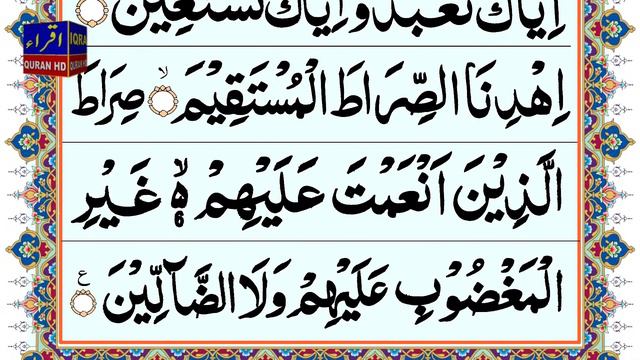 اِيَّاكَ نَعْبُدُ وَاِيَّاكَ نَسْتَعِيْنُ
اِهْدِنَا الصِّرَاطَ الْمُسْتَقِيْمَ ۙ صِرَاطَ
الَّذِيْنَ اَنْعَمْتَ عَلَيْهِمْ ۙ۬ۦ غَيْرِ
الْمَغْضُوْبِ عَلَيْهِمْ وَلَا الضَّآلِّيْنَ ع
اقراء
IQRA
QURAN HD
QURAN HD